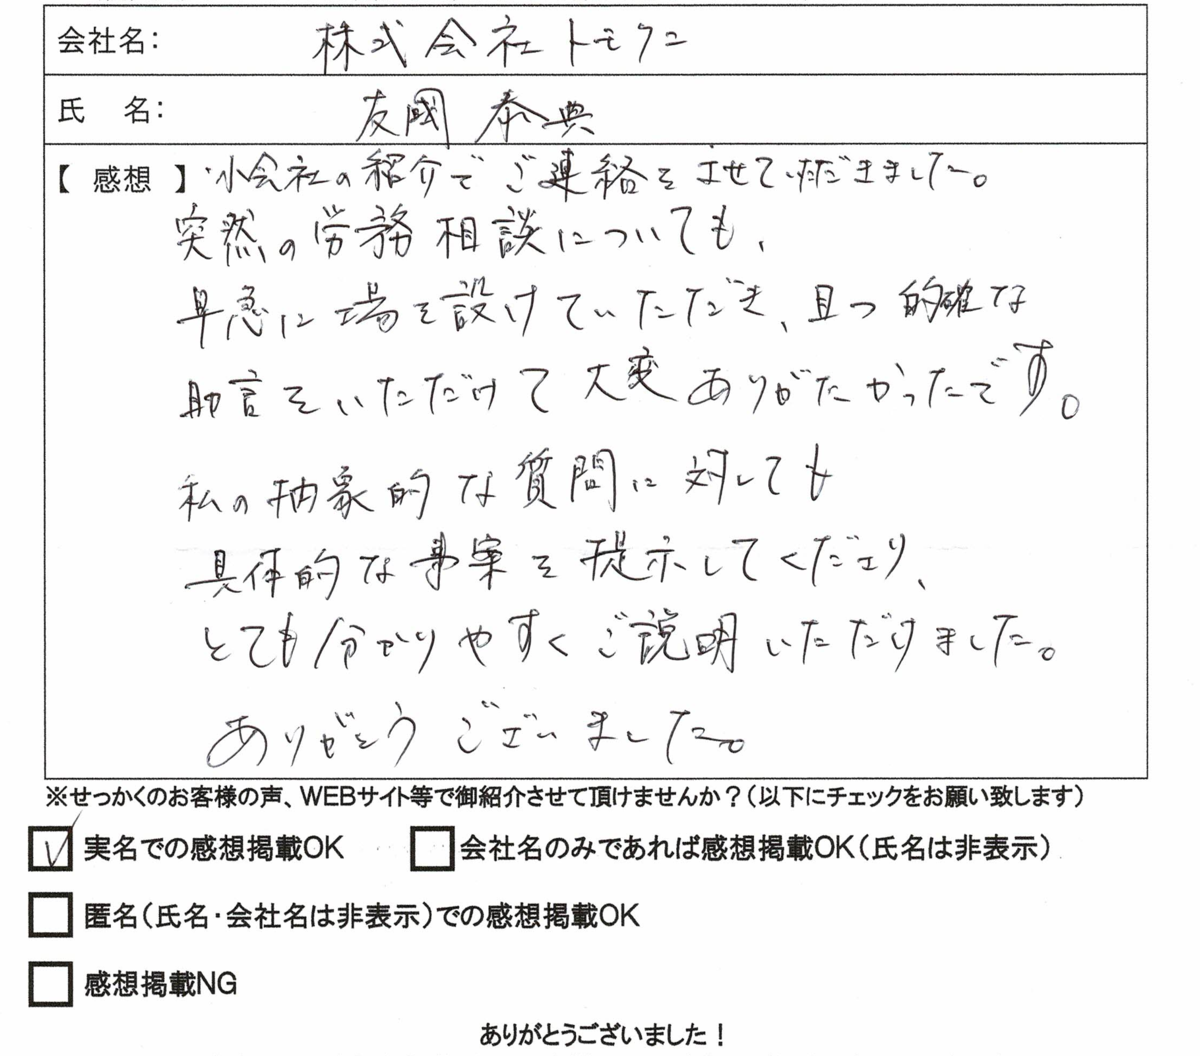 会社名： 株式会社トモクニ
氏　名： 友國 泰典
【 感想 】 小会社の紹介でご連絡をさせていただきました。
突然の労務相談についても、
早急に場を設けていただき、且つ的確な
助言をいただけて大変ありがたかったです。
私の抽象的な質問に対しても
具体的な事案を提示してくださり、
とても分かりやすくご説明いただけました。
ありがとうございました。
※せっかくのお客様の声、WEBサイト等で御紹介させて頂けませんか？（以下にチェックをお願い致します）
実名での感想掲載OK　会社名のみであれば感想掲載OK（氏名は非表示）
匿名（氏名・会社名は非表示）での感想掲載OK
感想掲載NG
ありがとうございました！